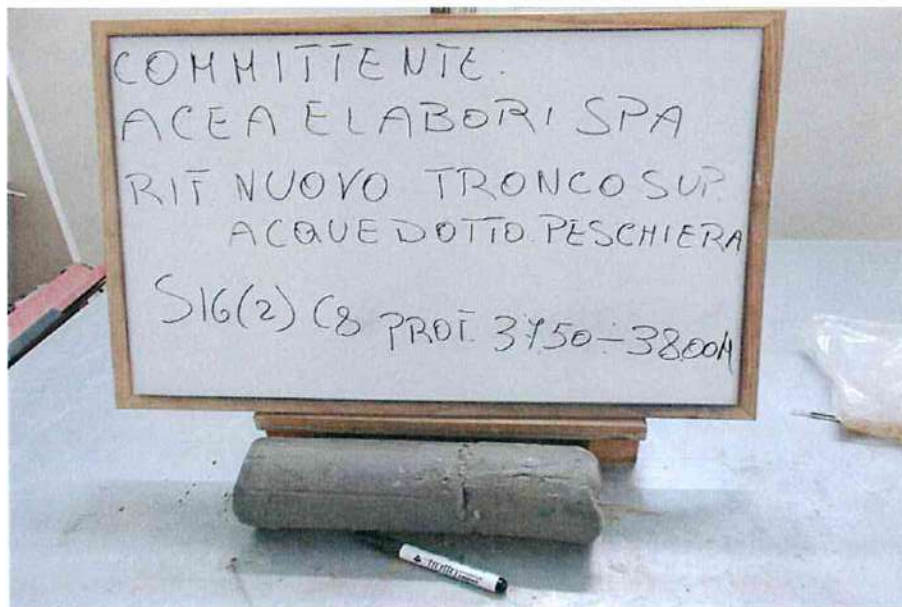 COMMITTENTE.
ACEA ELABORI SPA
RIF NUOVO TRONCO SUP.
ACQUEDOTTO PESCHIERA
S16(2) C8 PROF. 37.50-38.00M